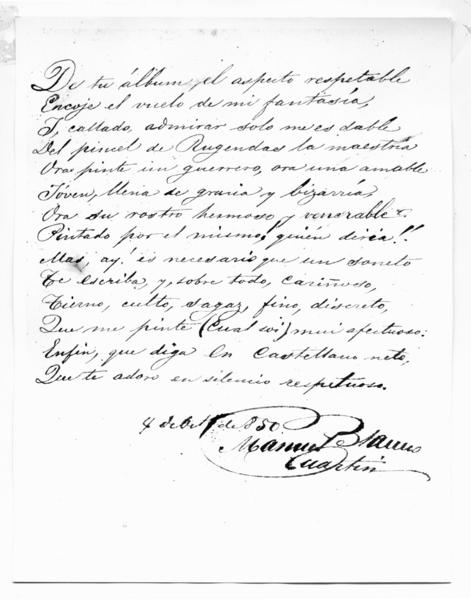 De tu álbum, el aspecto respetable
Encoje el vuelo de mi fantasía,
I, callado, admirar solo me es dable
Del pincel de Rugendas la maestría
Ora pinte un guerrero, ora una amable
Jóven, llena de gracia y bizarría,
Ora su rostro hermoso y venerable &.
Pintado por el mismo! quién diria!!
Mas, ay! és necesario que un soneto
Te escriba, y, sobre todo, cariñoso,
Tierno, culto, sagaz, fino, discreto,
Que me pinte (cual soi) mui afectuoso:
Enfin, que diga en castellano neto,
Que te adoro en silencio respetuoso.
4 de de 850
Manuel